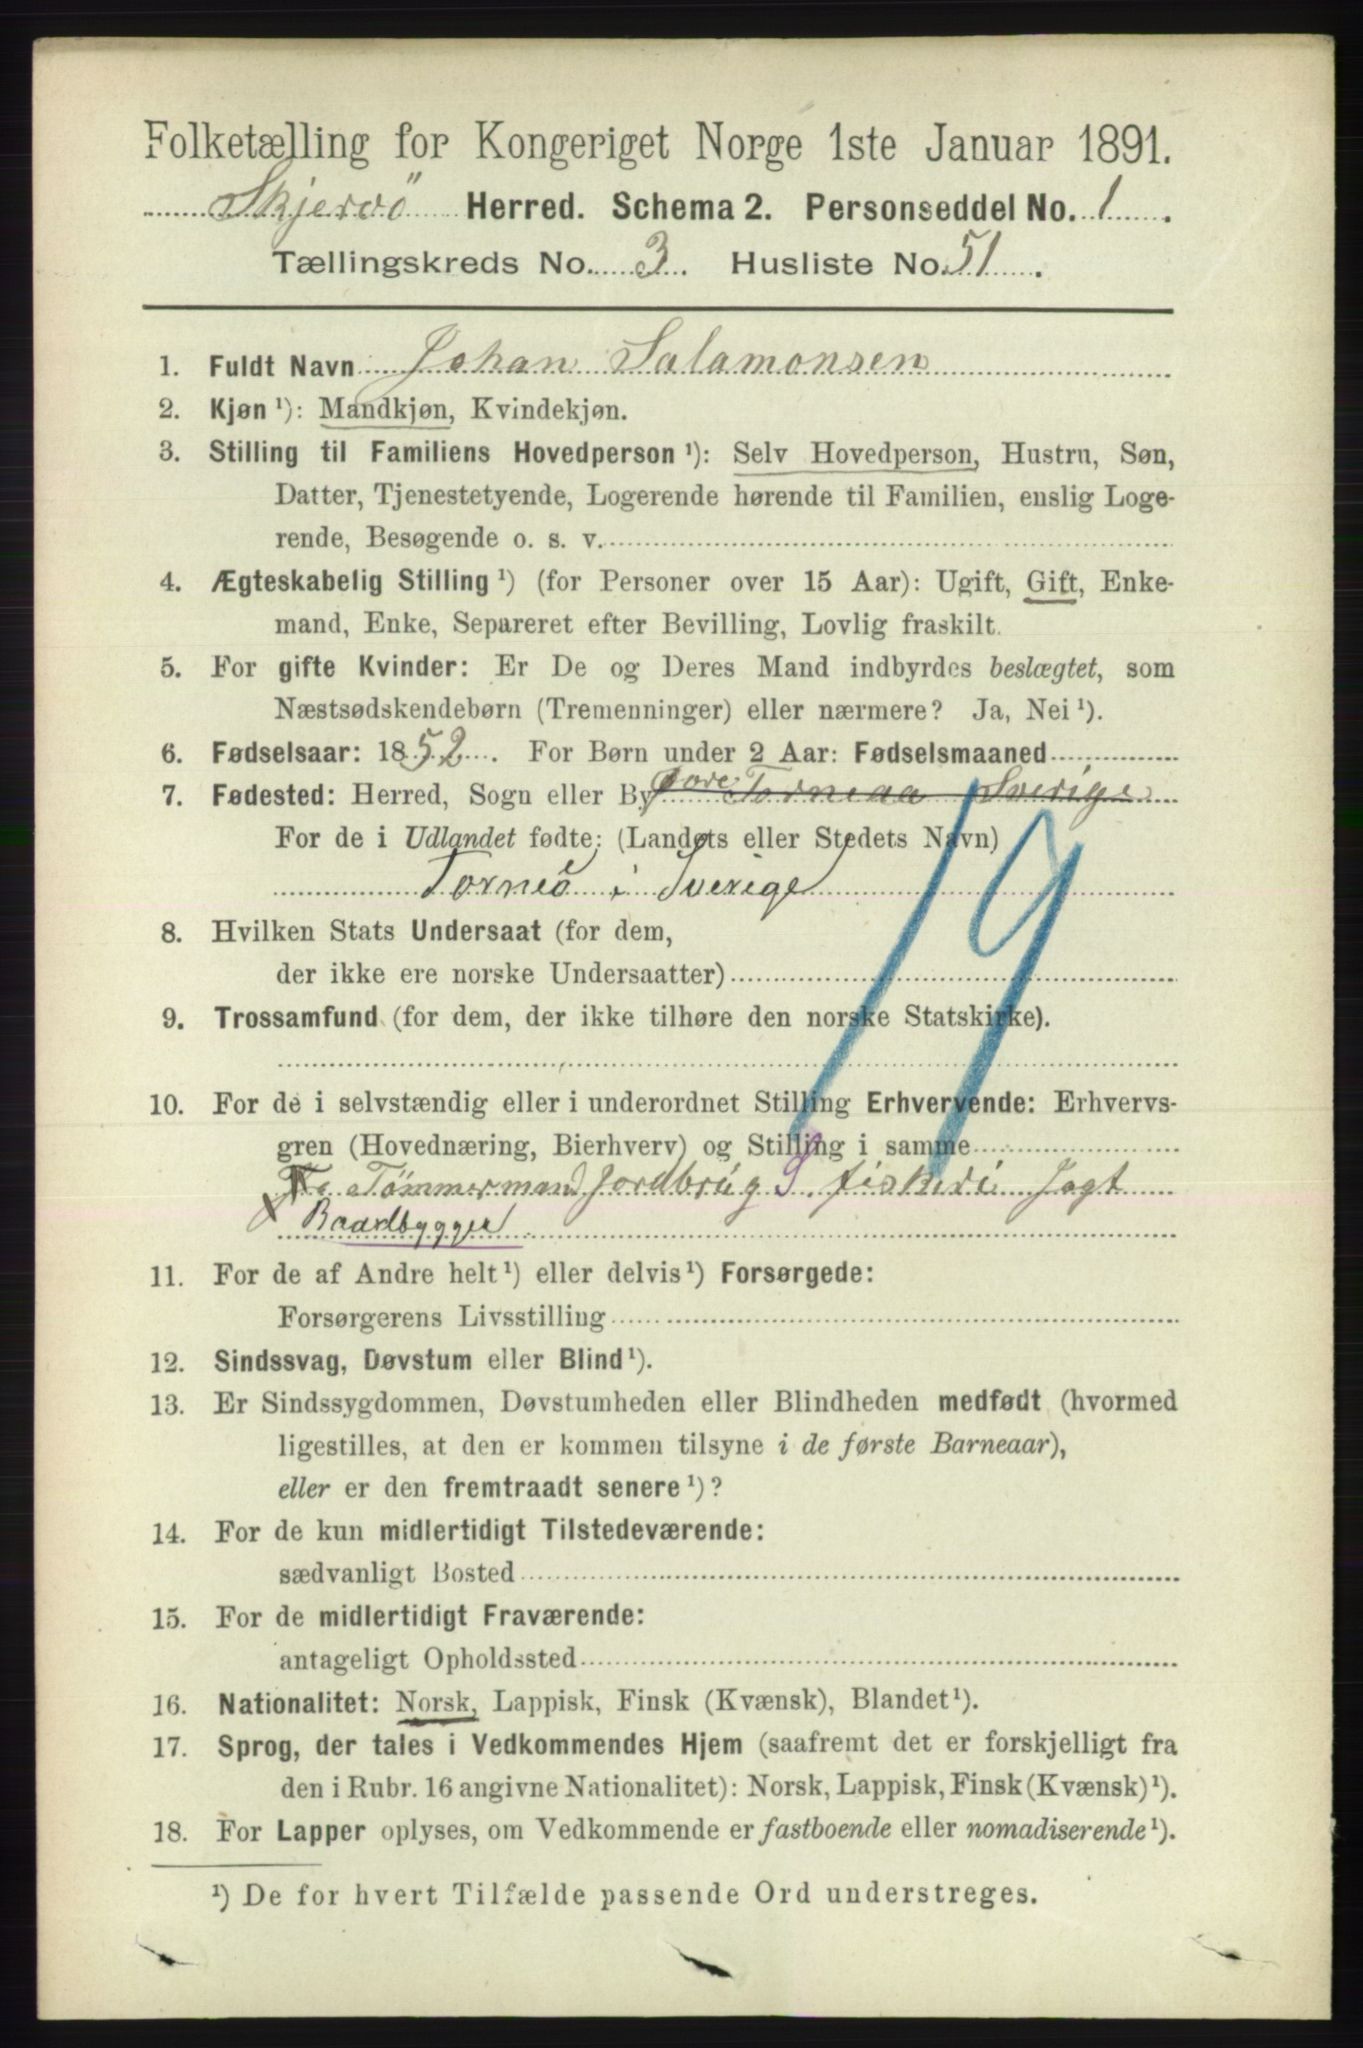 Folketælling for Kongeriget Norge 1ste Januar 1891.
Skjervö Herred. Schema 2. Personseddel No. 1.
Tællingskreds No. 3. Husliste No. 51.
1. Fuldt Navn Johan Salamonsen
2. Kjøn ¹): Mandkjøn, Kvindekjøn.
3. Stilling til Familiens Hovedperson ¹): Selv Hovedperson, Hustru, Søn,
Datter, Tjenestetyende, Logerende hørende til Familien, enslig Loge-
rende, Besøgende o. s. v.
4. Ægteskabelig Stilling ¹) (for Personer over 15 Aar): Ugift, Gift, Enke-
mand, Enke, Separeret efter Bevilling, Lovlig fraskilt.
5. For gifte Kvinder: Er De og Deres Mand indbyrdes beslægtet, som
Næstsødskendebørn (Tremenninger) eller nærmere? Ja, Nei ¹).
6. Fødselsaar: 1852. For Børn under 2 Aar: Fødselsmaaned
7. Fødested: Herred, Sogn eller By Torneaa Sverige
For de i Udlandet fødte: (Landets eller Stedets Navn)
Torneö i Sverige
8. Hvilken Stats Undersaat (for dem,
der ikke ere norske Undersaatter)
9. Trossamfund (for dem, der ikke tilhøre den norske Statskirke).
19
10. For de i selvstændig eller i underordnet Stilling Erhvervende: Erhvervs-
gren (Hovednæring, Bierhverv) og Stilling i samme
Tömmermand Jordbrug S. fiskeri Jagt
X Baadbygger
11. For de af Andre helt ¹) eller delvis ¹) Forsørgede:
Forsørgerens Livsstilling
12. Sindssvag, Døvstum eller Blind ¹).
13. Er Sindssygdommen, Døvstumheden eller Blindheden medfødt (hvormed
ligestilles, at den er kommen tilsyne i de første Barneaar),
eller er den fremtraadt senere ¹)?
14. For de kun midlertidigt Tilstedeværende:
sædvanligt Bosted
15. For de midlertidigt Fraværende:
antageligt Opholdssted
16. Nationalitet: Norsk, Lappisk, Finsk (Kvænsk), Blandet ¹).
17. Sprog, der tales i Vedkommendes Hjem (saafremt det er forskjelligt fra
den i Rubr. 16 angivne Nationalitet): Norsk, Lappisk, Finsk (Kvænsk) ¹).
18. For Lapper oplyses, om Vedkommende er fastboende eller nomadiserende ¹).
¹) De for hvert Tilfælde passende Ord understreges.